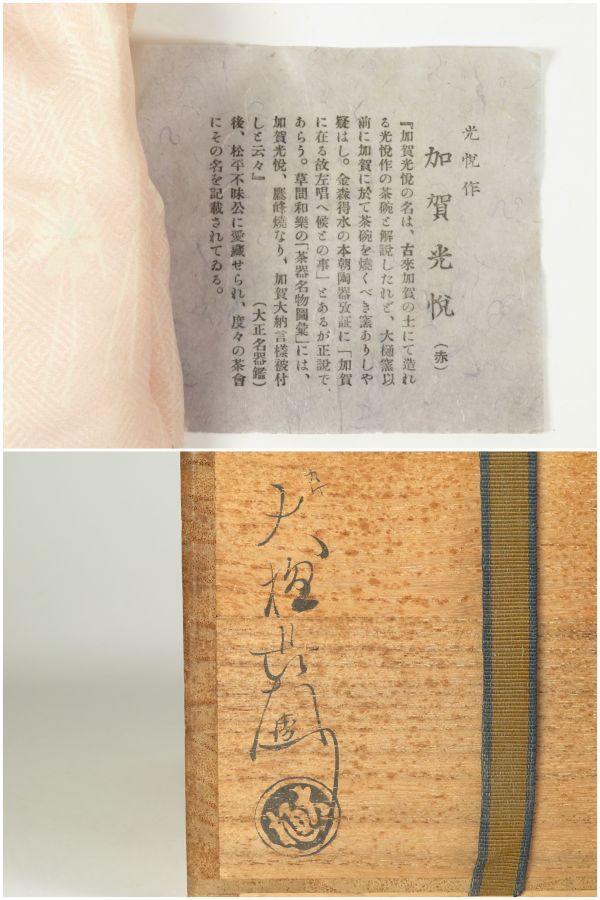 光悦作
加賀光悦(赤)
『加賀光悦の名は、古來加賀の土にて造れ
る光悦作の茶碗と解說したれど、大樋窯以
前に加賀に於て茶碗を燒くべき窯ありしや
疑はし。金森得水の本朝陶器攷証に「加賀
に在る故左唱へ候との事」とあるが正說で
あらう。草間和樂の「茶器名物圖彙」には、
加賀光悦、鷹峰燒なり、加賀大納言樣被付
しと云々』
(大正名器鑑)
後、松平不昧公に愛藏せられ、度々の茶會
にその名を記載されてゐる。
大樋